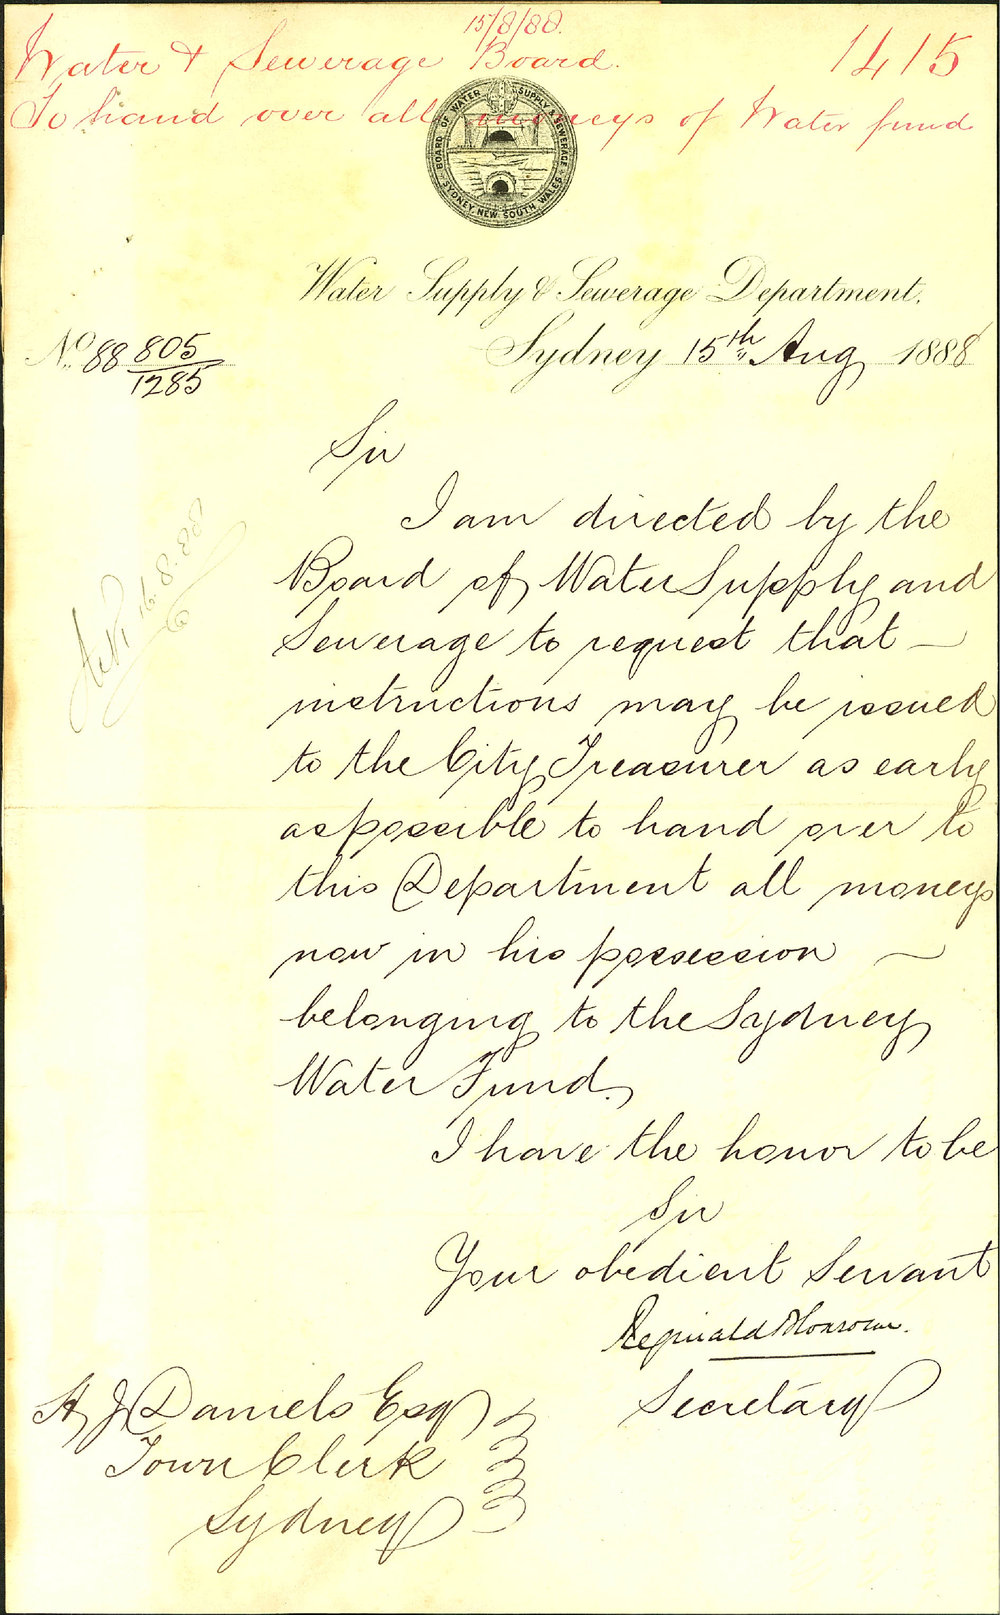 15/8/88.
Water & Sewerage Board. 1415
To hand over all moneys of Water fund
BOARD OF WATER SUPPLY & SEWERAGE
SYDNEY, NEW SOUTH WALES
Water Supply & Sewerage Department.
No. 88 805/1285
Sydney 15th Aug 1888
Sir
I am directed by the
Board of Water Supply and
Sewerage to request that —
instructions may be issued
to the City Treasurer as early
as possible to hand over to
this Department all moneys
now in his possession —
belonging to the Sydney
Water Fund.
I have the honor to be
Sir
Your obedient Servant
Reginald
Secretary
H J Daniels Esq
Town Clerk
Sydney
16.8.88